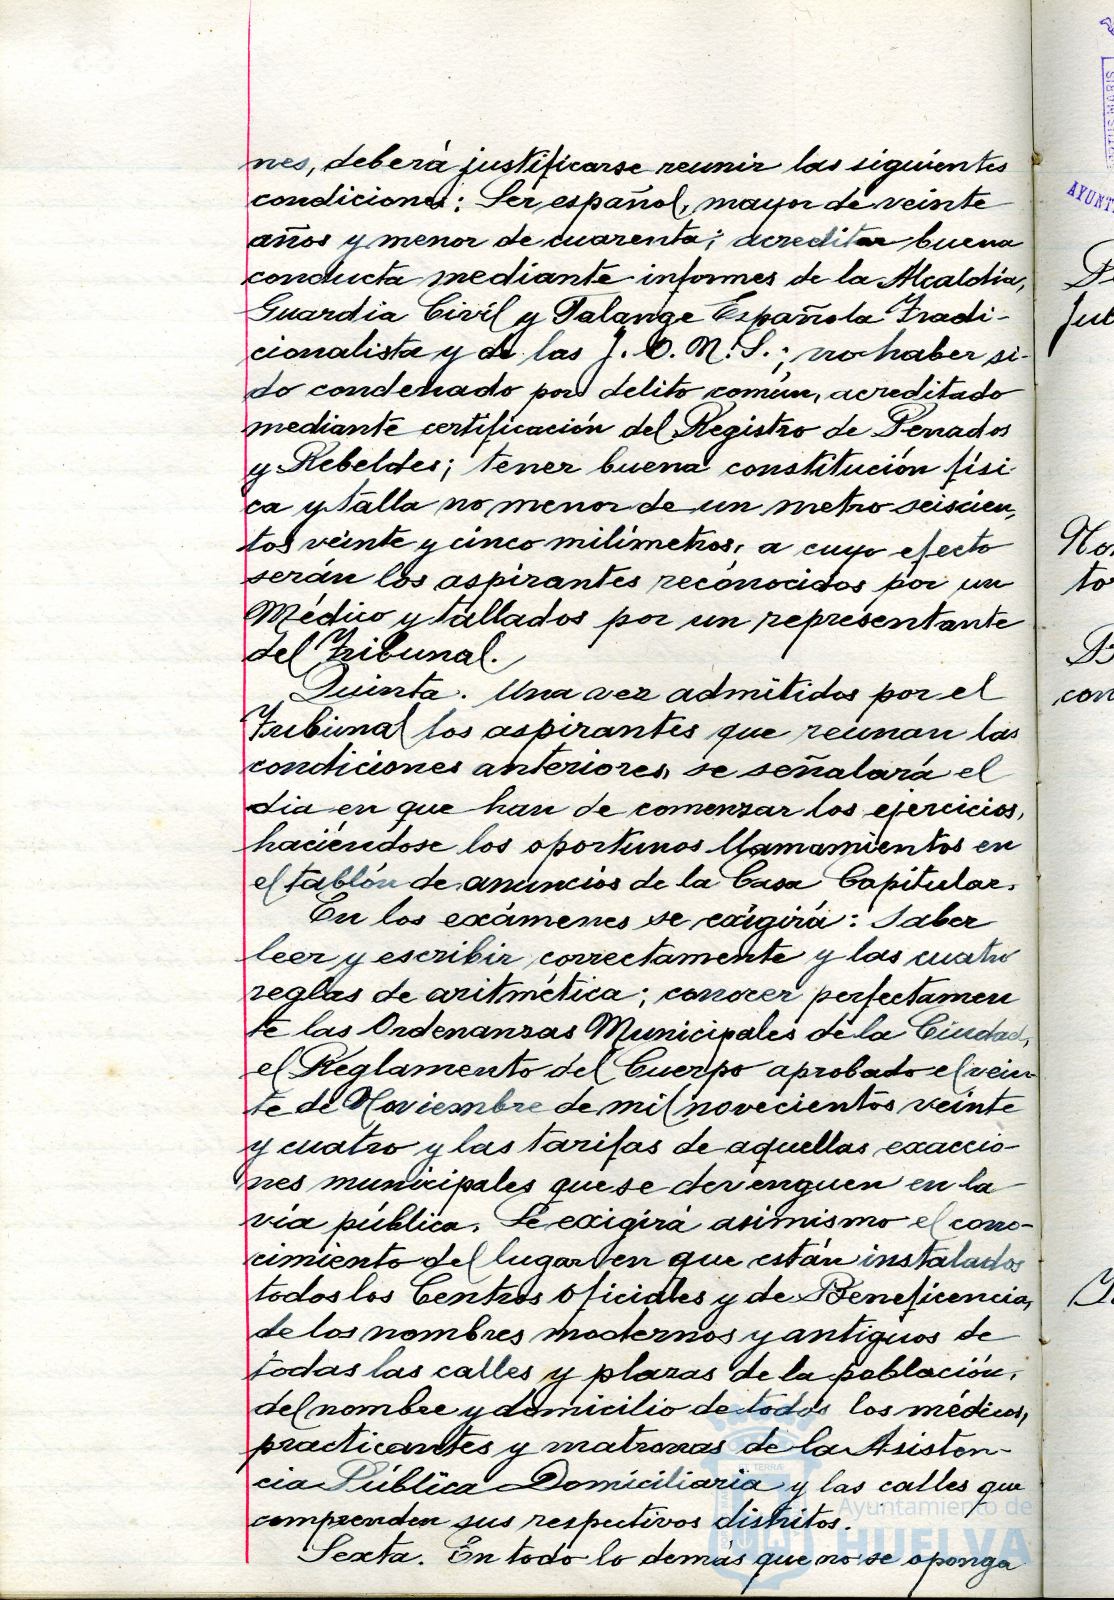 nes, deberá justificarse reunir las siguientes
condiciones: Ser español, mayor de veinte
años y menor de cuarenta; acreditar buena
conducta mediante informes de la Alcaldía,
Guardia Civil y Falange Española Tradi-
cionalista y de las J.O.N.S.; no haber si-
do condenado por delito común, acreditado
mediante certificación del Registro de Penados
y Rebeldes; tener buena constitución físi-
ca y talla no menor de un metro seiscien-
tos veinte y cinco milímetros, a cuyo efecto
serán los aspirantes reconocidos por un
Médico y tallados por un representante
del Tribunal.
Quinta. Una vez admitidos por el
Tribunal los aspirantes que reúnan las
condiciones anteriores, se señalará el
día en que han de comenzar los ejercicios,
haciéndose los oportunos llamamientos en
el tablón de anuncios de la Casa Capitular.
En los exámenes se exigirá: Saber
leer y escribir correctamente y las cuatro
reglas de aritmética; conocer perfectamen
te las Ordenanzas Municipales de la Ciudad,
el Reglamento del Cuerpo aprobado el vein-
te de Noviembre de mil novecientos veinte
y cuatro y las tarifas de aquellas exaccio-
nes municipales que se devenguen en la
vía pública. Se exigirá asimismo el cono-
cimiento del lugar en que están instalados
todos los Centros Oficiales y de Beneficencia,
de los nombres modernos y antiguos de
todas las calles y plazas de la población,
del nombre y domicilio de todos los médicos,
practicantes y matronas de la Asisten-
cia Pública Domiciliaria y las calles que
comprenden sus respectivos distritos.
Sexta. En todo lo demás que no se oponga
Ayuntamiento de
HUELVA
AYUNT